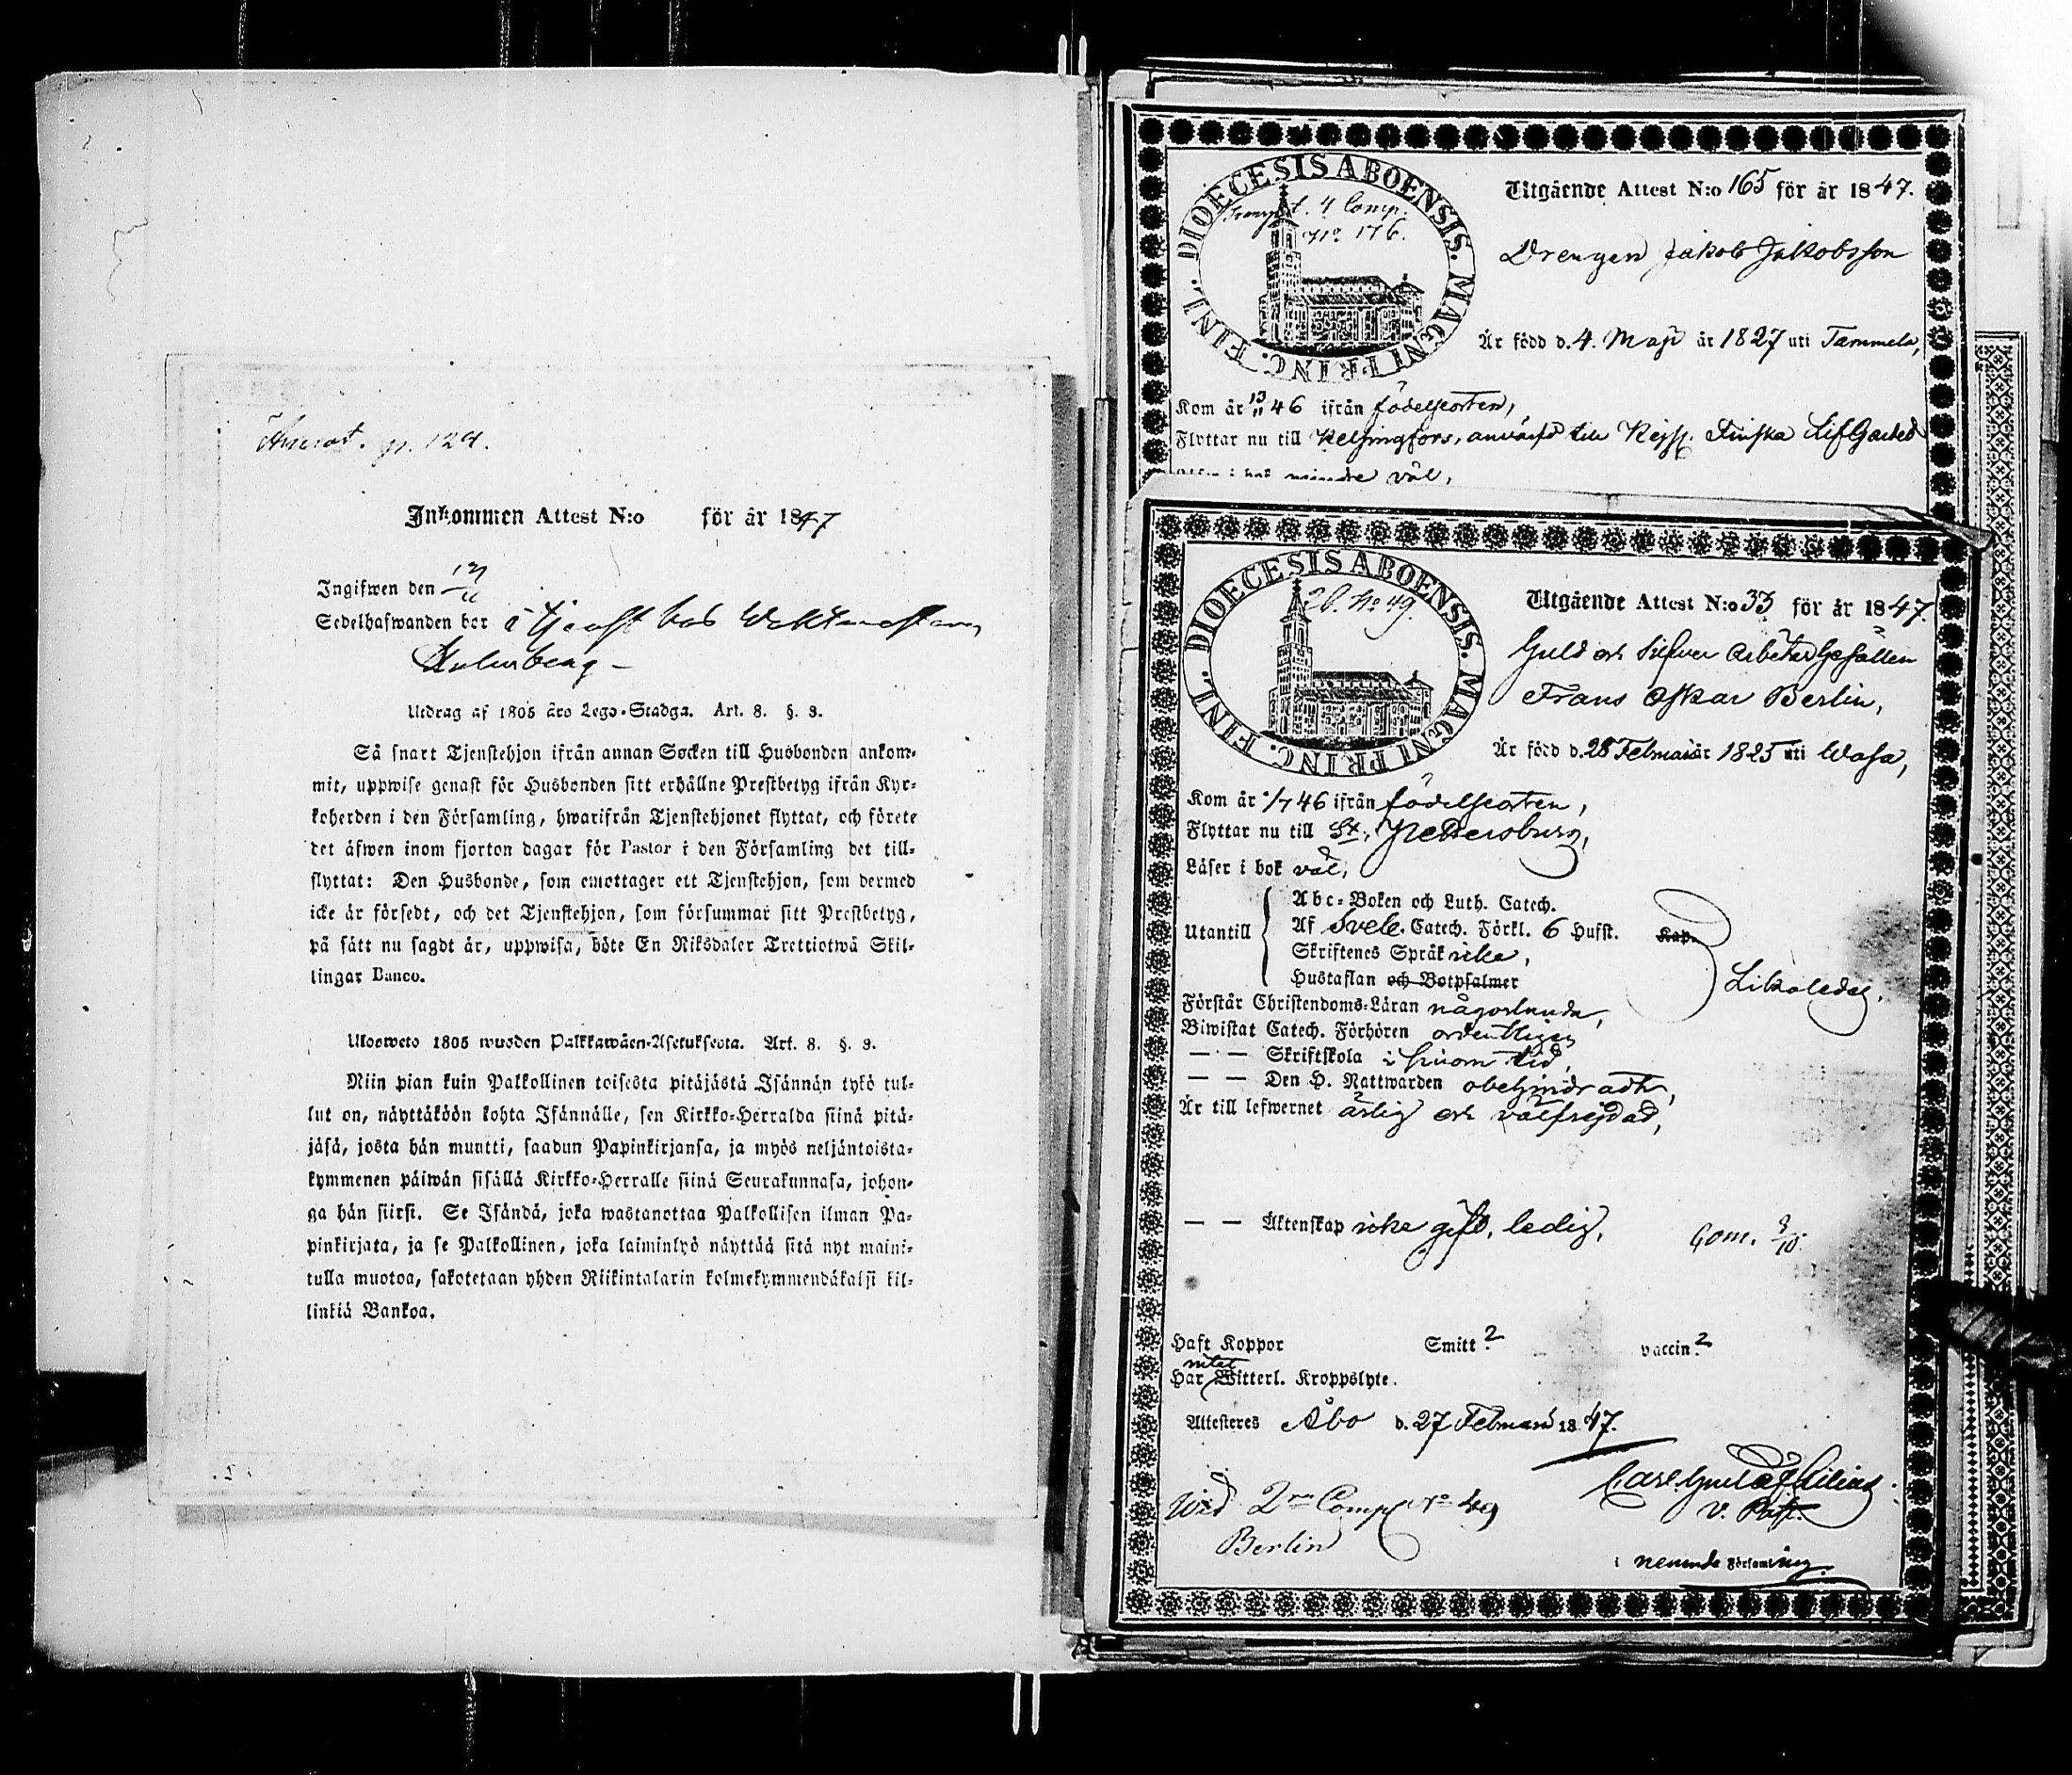 p. 124.
Inkommen Attest N:o för år 1847
Ingifwen den
Sedelhafwanden bor i tjenst hos
Utdrag af 1805 års Lego-Stadga. Art. 8. §. 9.
Så snart Tjenstehjon ifrån annan Socken till Husbonden ankom-
mit, uppwise genast för Husbonden sitt erhållne Prestbetyg ifrån Kyr-
koherden i den Församling, hwarifrån Tjenstehjonet flyttat, och förete
det äfwen inom fjorton dagar för Pastor i den Församling det till-
flyttat: Den Husbonde, som emottager ett Tjenstehjon, som dermed
icke är försedt, och det Tjenstehjon, som försummar sitt Prestbetyg,
på sätt nu sagdt är, uppwisa, böte En Riksdaler Trettiotwå Skil-
lingar Banco.
Ulosweto 1805 wuoden Palkkawäen-Asetuksesta. Art. 8. §. 9.
Niin pian kuin Palkollinen toisesta pitäjästä Isännän tykö tul-
lut on, näyttäköön kohta Isännälle, sen Kirkko-Herralda siinä pitä-
jäsä, josta hän muutti, saadun Papinkirjansa, ja myös neljäntoista-
kymmenen päiwän sisällä Kirkko-Herralle siinä Seurakunnasa, johon-
ga hän siirsi. Se Isändä, joka wastanottaa Palkollisen ilman Pa-
pinkirjata, ja se Palkollinen, joka laiminlyö näyttää sitä nyt maini-
tulla muotoa, sakotetaan yhden Riikintalarin kolmekymmendäkaksi kil-
linkiä Bankoa.
DIOECESIS ABOENSIS. MAGNI PRINC. FINL.
4 Comp.
No 176.
Utgående Attest N:o 165 för år 1847.
Drengen Jakob Jakobsson
Är född d. 4. Maji år 1827 uti Tammela,
Kom år 13/11 46 ifrån födelseorten,
Flyttar nu till Helsingfors, antagen till Kejs. Finska Lif Gardet
Läser i bok mindre väl,
DIOECESIS ABOENSIS. MAGNI PRINC. FINL.
2b. No 49.
Utgående Attest N:o 33 för år 1847.
Guld och Silfver Arbetar Gesällen
Frans Oskar Berlin,
Är född d. 28 Februari år 1825 uti Wasa,
Kom år /7 46 ifrån födelseorten,
Flyttar nu till St. Petersburg,
Läser i bok väl,
Utantill
Abc-Boken och Luth. Catech.
Af Sveb. Catech. Förkl. 6 Hufst. Kap.
Skriftenes Språk icke,
Hustaflan och Botpsalmer
Likaledes.
Förstår Christendoms-Läran någorlunda,
Biwistat Catech. Förhören ordentligen
— — Skriftskola i sinom tid,
— — Den H. Nattwarden obehindradt,
Är till lefwernet ärlig och välfrejdad,
— — Äktenskap icke gift, ledig. Com. 3/10
Haft Koppor Smitt? vaccin?
intet
Har Witterl. Kroppslyte.
Attesteres Åbo d. 27 Februari 1847.
Carl Gustaf
v. Past.
i nemnde Församling.
Wid 2ra Comp No 49
Berlin